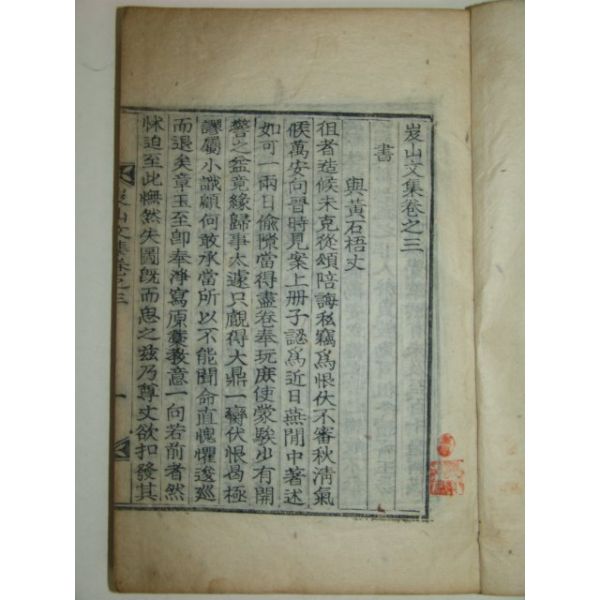 岌山文集卷之三
書
與黃石梧丈
徂者造候未克從頌陪誨私竊爲恨伏不審秋淸氣
候萬安向晉時見案上册子認爲近日燕閒中著述
如可一兩日偸隙當得盡卷奉玩庶使蒙騃少有開
警之益竟緣歸事太遽只覰得大鼎一臠伏恨曷極
謬屬小識顧何敢承當所以不能聞命直愧懼逡巡
而退矣章玉至卽奉淨寫原藁敎意一向若前者然
怵迫至此憮然失圖旣而思之玆乃尊丈欲扣發其
山文集卷之三
一